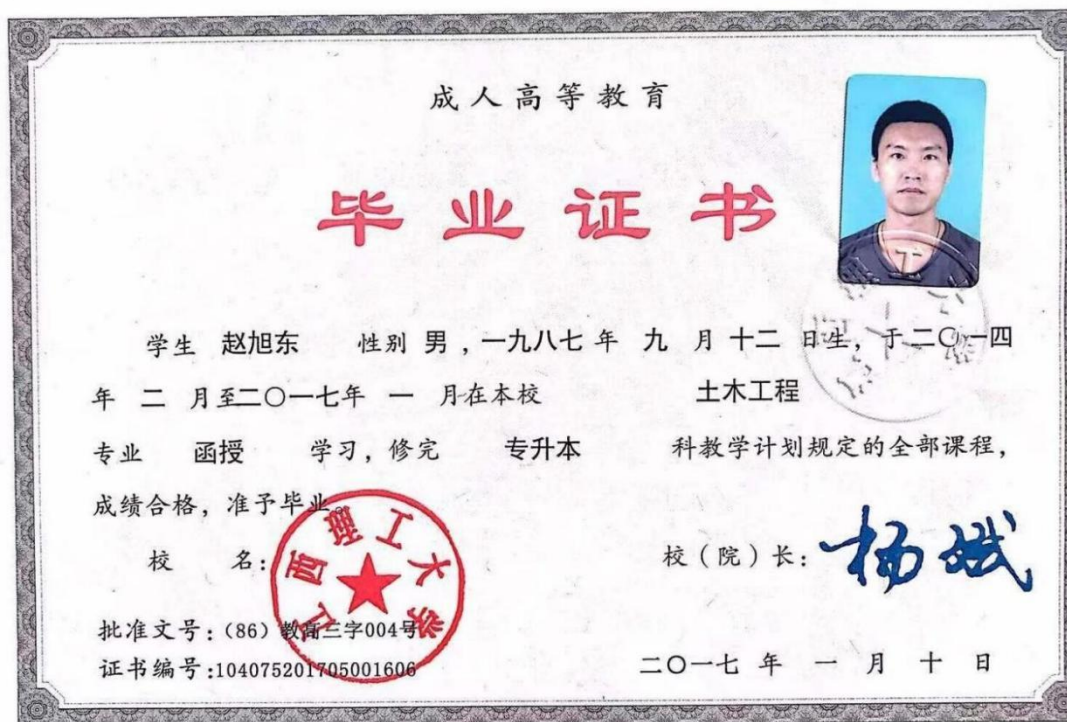 成人高等教育
毕业证书
学生 赵旭东 性别 男，一九八七 年 九 月 十二 日生，于二〇一四
年 二 月至二〇一七年 一 月在本校 土木工程
专业 函授 学习，修完 专升本 科教学计划规定的全部课程，
成绩合格，准予毕业。
校 名：
江西理工大学
校（院）长：
批准文号：（86）教高三字004号
证书编号:104075201705001606
二〇一七 年 一 月 十 日